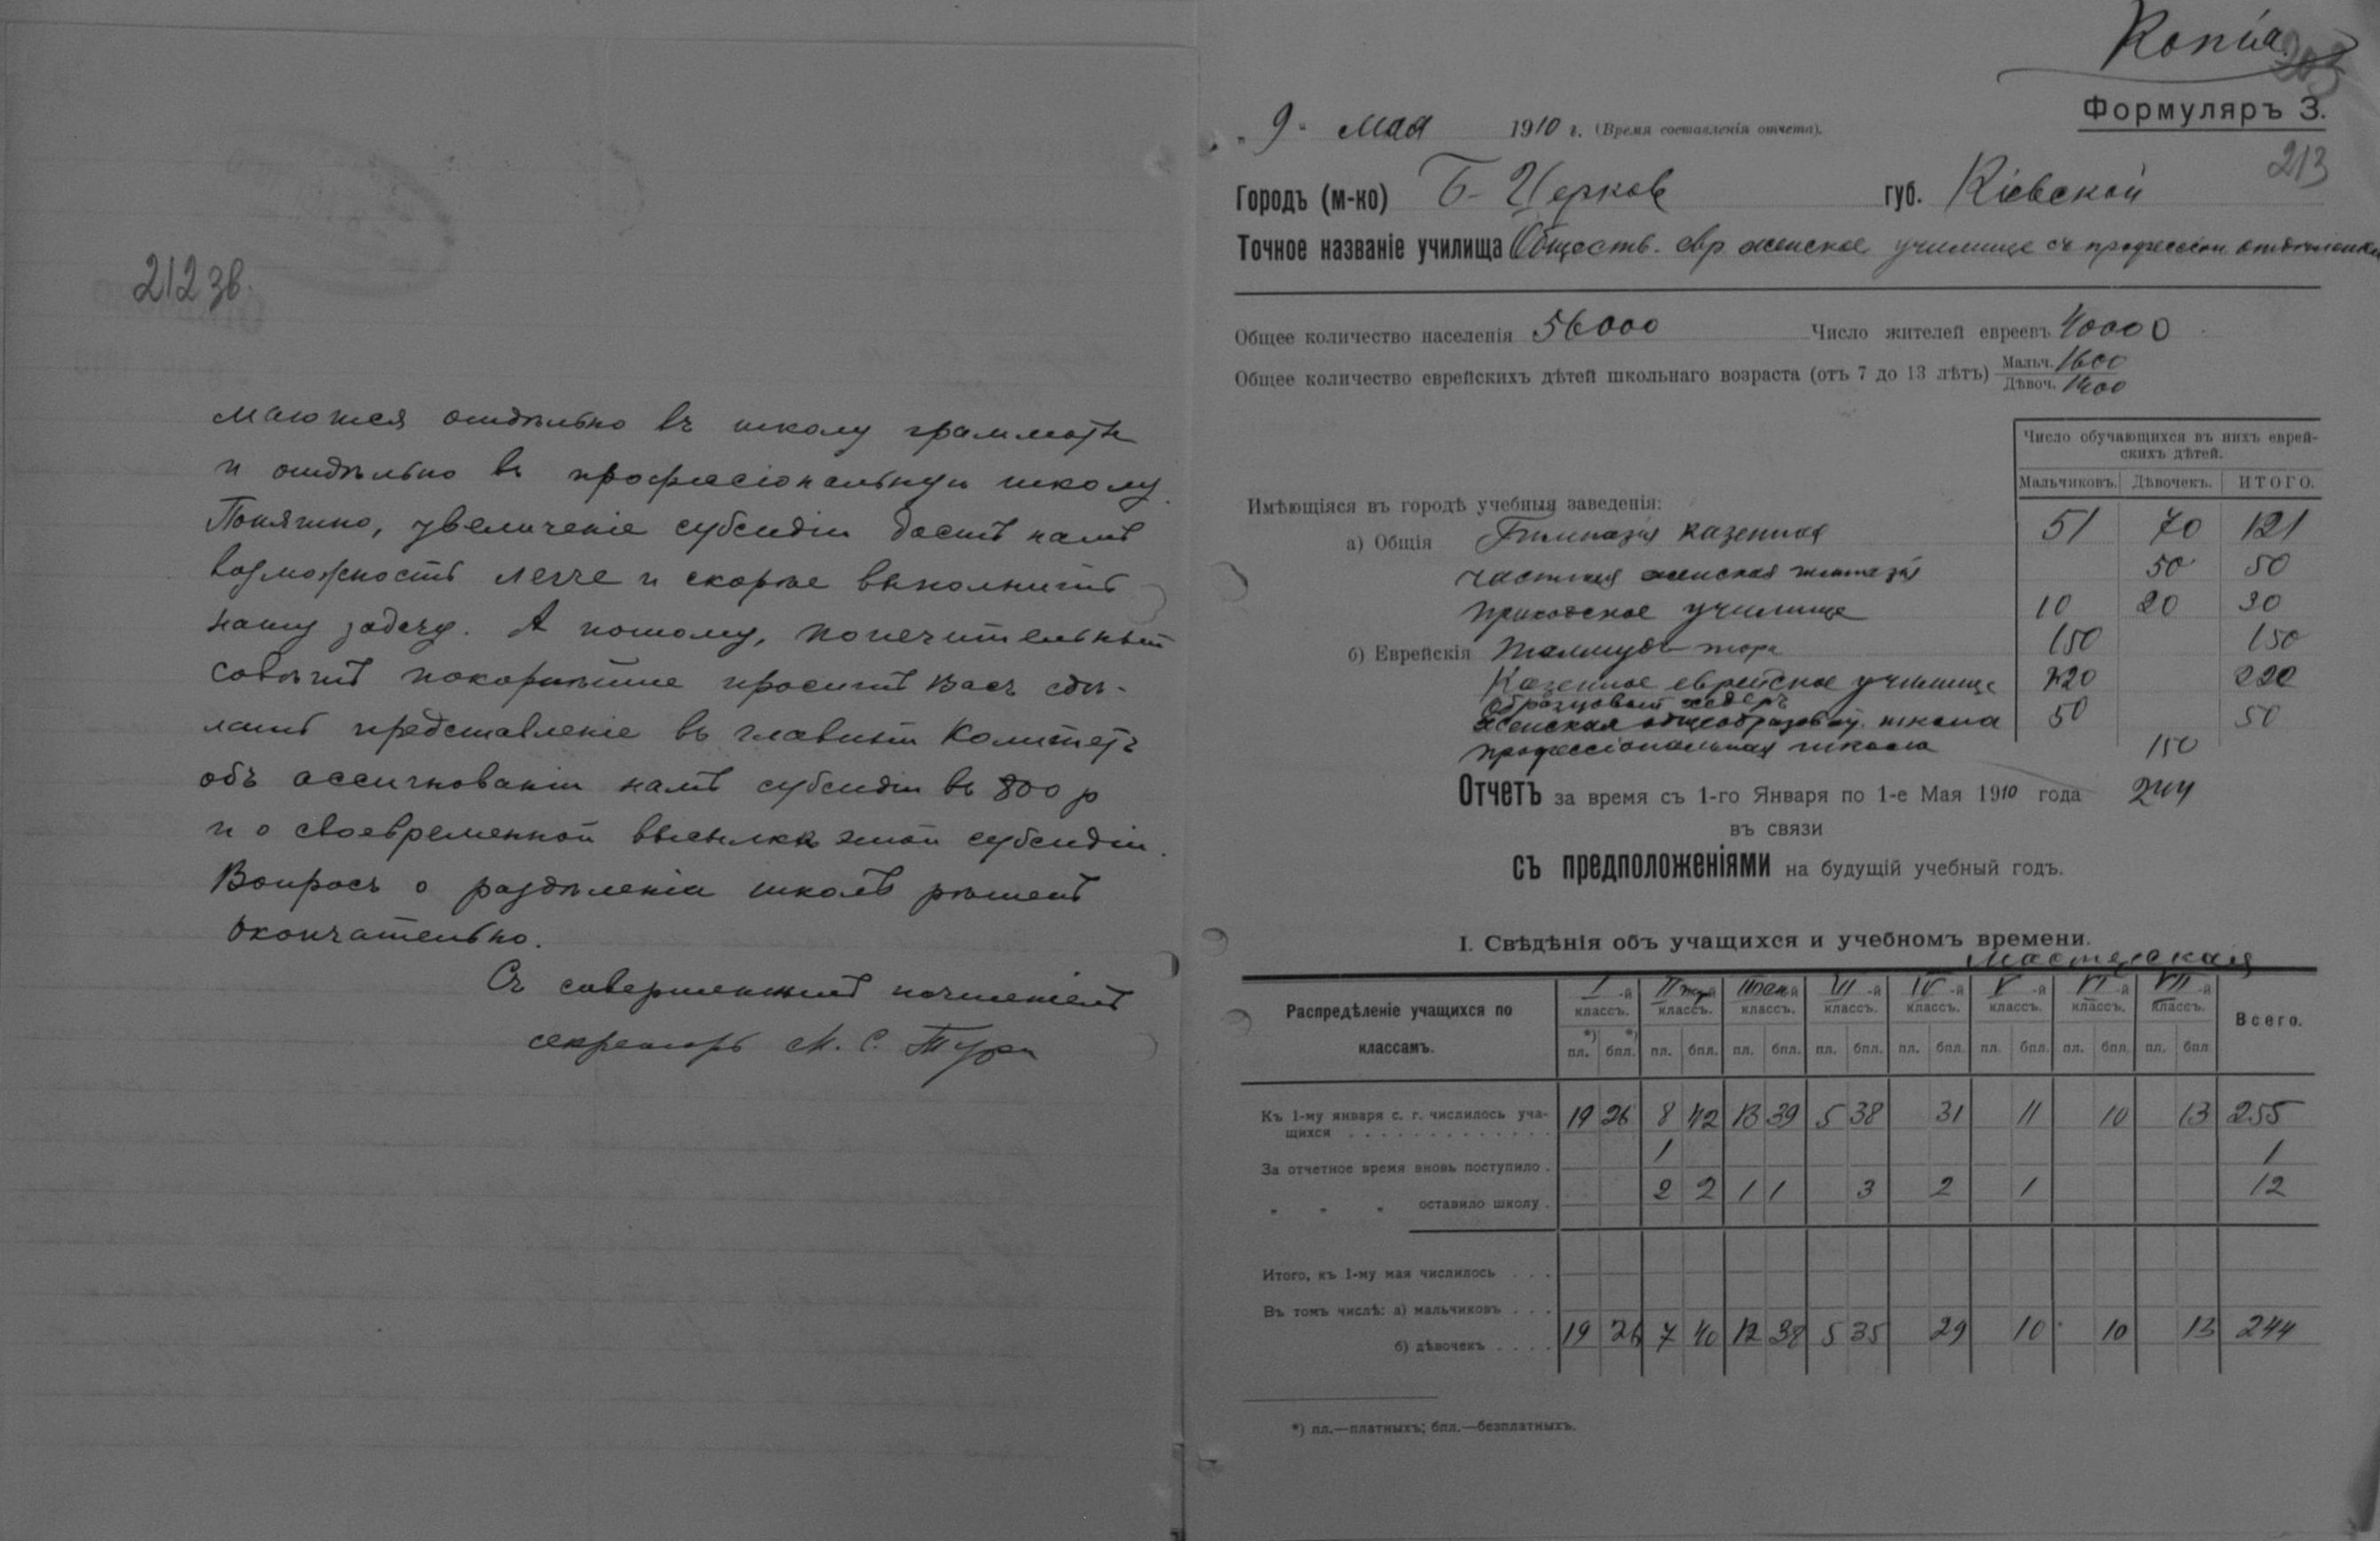 212 зв.
маются отдѣльно въ школу грамматы
и отдѣльно въ професіональную школу.
Понятно, увеличеніе субсидіи даетъ намъ
возможность легче и скорѣе выполнить
нашу задачу. А потому, попечительный
совѣтъ покорнѣйше проситъ Васъ сдѣ-
лать представленіе въ главный Комитетъ
объ ассигнованіи намъ субсидіи въ 800 р
и о своевременной высылкѣ этой субсидіи.
Вопросъ о раздѣленіи школъ рѣшенъ
окончательно.
Съ совершеннымъ почтеніемъ
секретарь М. С.
Копія
203
Формуляръ 3.
213
„ 9 “ Мая 1910 г. (Время составленія отчета).
Городъ (м-ко) Б-Церковь губ. Кіевской
Точное названіе училища Обществ. евр. женское училище съ профессіон. отдѣленіем
Общее количество населенія 56000 Число жителей евреевъ 40000
Общее количество еврейскихъ дѣтей школьнаго возраста (отъ 7 до 13 лѣтъ) Мальч. 1600
Дѣвоч. 1400
Число обучающихся въ нихъ еврей-
скихъ дѣтей.
Мальчиковъ. Дѣвочекъ. ИТОГО.
Имѣющіяся въ городѣ учебныя заведенія:
а) Общія Гимназія казенная 51 70 121
частная женская гимназія 50 50
приходское училище 10 20 30
б) Еврейскія Талмудъ тора 150 150
Казенное еврейское училище 220 220
Образцовый хедеръ 50 50
женская общеобразоват. школа
профессіональная школа 150
Отчетъ за время съ 1-го Января по 1-е Мая 1910 года 244
въ связи
съ предположеніями на будущій учебный годъ.
I. Свѣдѣнія объ учащихся и учебномъ времени.
Мастерская
Распредѣленіе учащихся по классамъ. I-й классъ. II -й классъ. III -й классъ. III -й классъ. IV-й классъ. V-й классъ. VI-й классъ. VII-й классъ. Всего.
*) пл. *) бпл. пл. бпл. пл. бпл. пл. бпл. пл. бпл. пл. бпл. пл. бпл. пл. бпл.
Къ 1-му января с. г. числилось уча-
щихся 19 26 8 42 13 39 5 38 31 11 10 13 255
За отчетное время вновь поступило . 1 1
„ „ „ оставило школу . 2 2 1 1 3 2 1 12
Итого, къ 1-му мая числилось . . .
Въ томъ числѣ: а) мальчиковъ . . .
б) дѣвочекъ . . . . 19 26 7 40 12 38 5 35 29 10 10 13 244
*) пл.—платныхъ; бпл.—безплатныхъ.